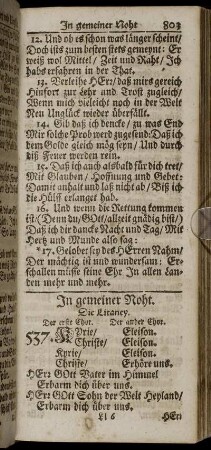 In gemeiner Noht 803
12. Und ob es schon was länger scheint/
Doch ists zum besten stets gemeynt: Er
weiß wol Mittel/ Zeit und Raht/ Ich
habs erfahren in der That.
13. Verleihe HErr/ daß mirs gereich
Hinfort zur Lehr und Trost zugleich/
Wenn mich vielleicht noch in der Welt
Neu Unglück wieder überfällt.
14. Gib daß ich dencke/ zu was End
Mir solche Prob werd zugesend: Daß ich
dem Golde gleich mög seyn/ Und durch
diß Feuer werden rein.
15. Daß ich auch alsbald für dich tret/
Mit Glauben/ Hoffnung und Gebet:
Damit anhalt und laß nicht ab/ Biß ich
die Hülff erlanget hab.
16. Und wenn die Rettung kommen
ist/ (Denn du/ GOtt/ allzeit gnädig bist/)
Daß ich dir dancke Nacht und Tag/ Mit
Hertz und Munde also sag:
*17. Gelobet sey des HErren Nahm/
Der mächtig ist und wundersam: Er-
schallen müsse seine Ehr In allen Lan-
den mehr und mehr.
In gemeiner Noht.
Die Litaney.
Der erste Chor. Der ander Chor.
537. KYrie/ Eleison.
Christe/ Eleison.
Kyrie/ Eleison.
Christe/ Erhöre uns.
HErr GOtt Vater im Himmel
Erbarm dich über uns.
HErr GOtt Sohn der Welt Heyland/
Erbarm dich über uns.
Ll 6 HErr